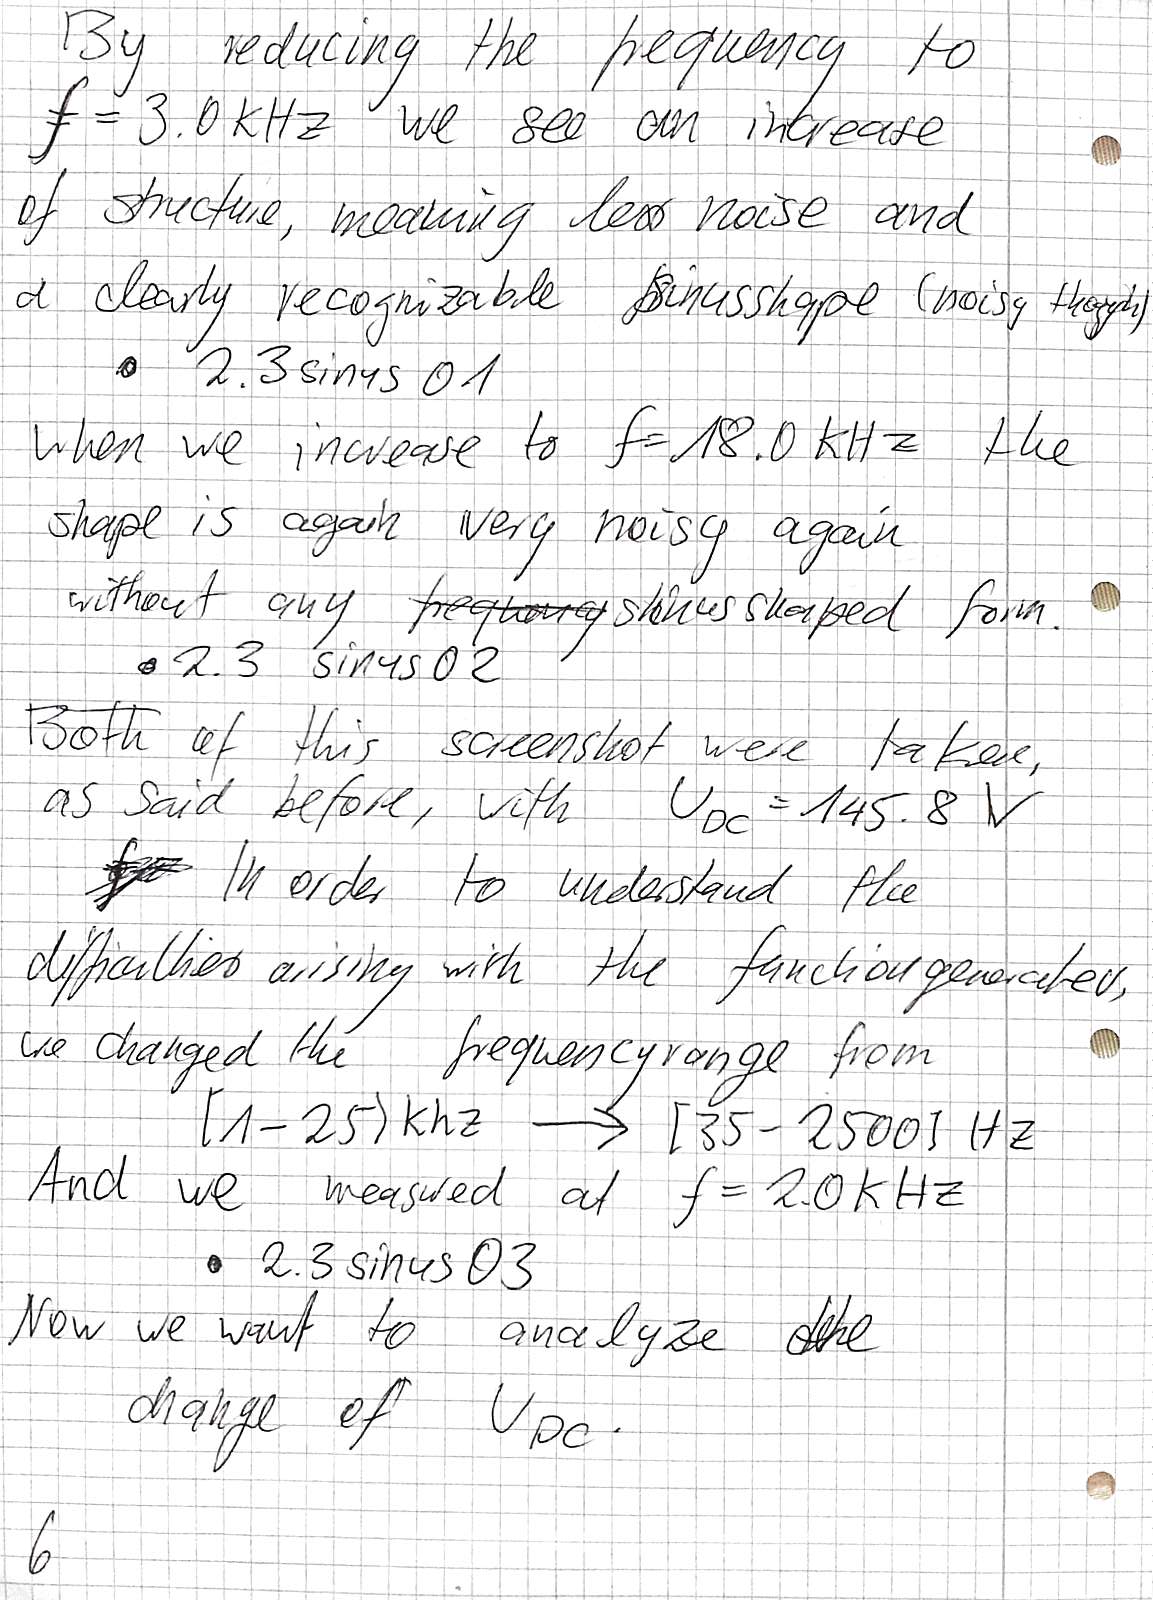 By reducing the frequency to
f = 3.0 kHz we see an increase
of structure, meaning less noise and
a clearly recognizable sinusshape (noisy though)
• 2.3 sinus 01
When we increase to f = 18.0 kHz the
shape is again very noisy again
without any sinusshaped form.
• 2.3 sinus 02
Both of this screenshot were taken,
as said before, with U_DC = 145.8 V
In order to understand the
difficulties arising with the functiongenerator,
we changed the frequencyrange from
[1-25) khz → [35-2500] Hz
And we measured at f = 2.0 kHz
• 2.3 sinus 03
Now we want to analyze the
change of U_DC.
6